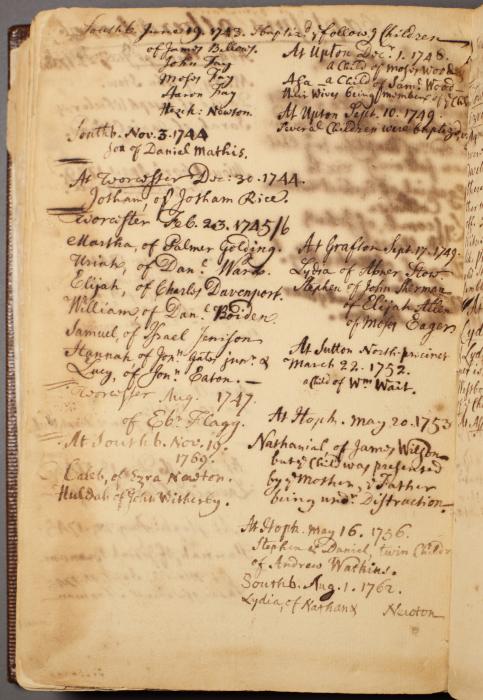 Southb. June 19. 1743. Baptiz'd ye follow'g Children
of James Bellows.
John Fay
Moses Fay
Aaron Fay
Hezek: Newton.
Southb. Nov. 3. 1744
Son of Daniel Mathis.
At Worcester Dec: 30. 1744.
Jotham, of Jotham Rice.
Worcester Feb. 23. 1745/6
Martha, of Palmer Golding.
Uriah, of Danl. Ward.
Elijah, of Charles Davenport.
William, of Danl. Boiden.
Samuel, of Israel Jenison
Hannah of Jonn. Gates junr. &
Lucy, of Jonn. Eaton.
Worcester Aug. 1747.
of Ebr. Flagg.
At Southb. Nov. 19.
1769.
Caleb, of Ezra Newton.
Huldah of John Witherby.
At Upton Dec. 1. 1748.
a Child of Moses Wood
Asa a Child of Saml. Wood
their Wives being members of ye
At Upton Sept. 10. 1749.
Several Children were baptized
At Grafton Sept. 17. 1749.
Lydia of Abner Stow
Stephen of John Sherman
of Elijah Allen
of Moses Eager
At Sutton North-precinct
March 22. 1752.
a Child of Wm. Wait.
At Hoph. May 20. 1753
Nathanial of James Wilson
but ye Child was presented
by ye Mother, ye Father
being undr. Distraction.
At Hoph. May 16. 1756.
Stephen & Daniel, twin Childn
of Andrew Watkins.
Southb. Aug. 1. 1762.
Lydia, of Nathan Newton